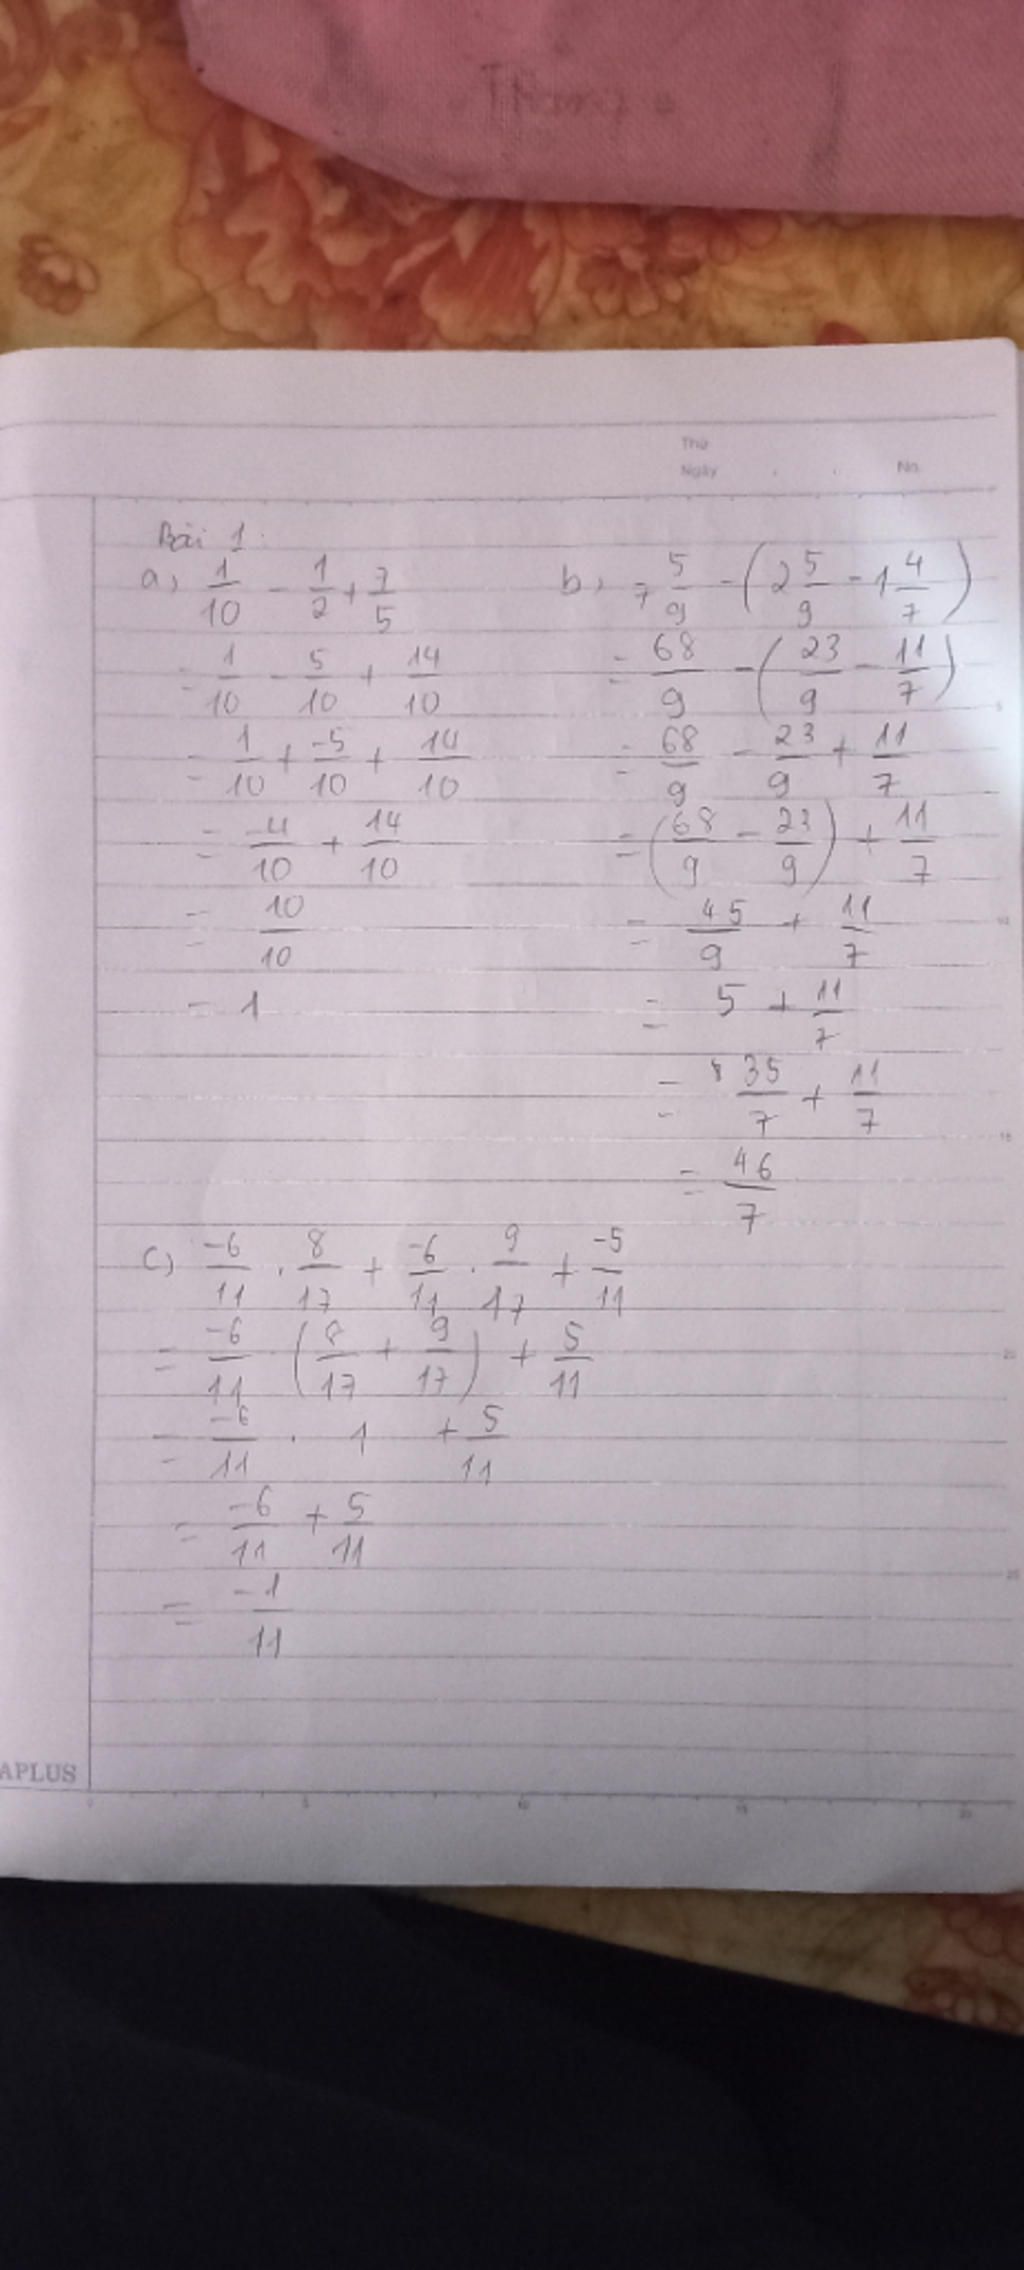 Thứ
Ngày . . No.
Bài 1:
a, 1/10 - 1/2 + 7/5
= 1/10 - 5/10 + 14/10
= 1/10 + -5/10 + 14/10
= -4/10 + 14/10
= 10/10
= 1
b, 7 5/9 - (2 5/9 - 1 4/7)
= 68/9 - (23/9 - 11/7)
= 68/9 - 23/9 + 11/7
= (68/9 - 23/9) + 11/7
= 45/9 + 11/7
= 5 + 11/7
= 35/7 + 11/7
= 46/7
c, -6/11 . 8/17 + -6/11 . 9/17 + -5/11
= -6/11 . (8/17 + 9/17) + 5/11
= -6/11 . 1 + 5/11
= -6/11 + 5/11
= -1/11
APLUS